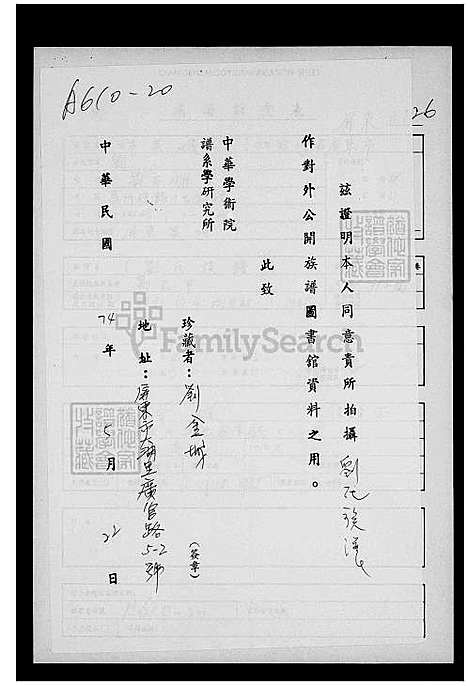 A610-20
26
茲證明本人同意貴所拍攝劉氏族譜
作對外公開族譜圖書館資料之用。
此致
中華學術院
譜系學研究所
珍藏者：劉金城
（簽章）
地址：屏東市大湖里廣官路5-2號
中華民國 74年 5月 22日
FamilySearch